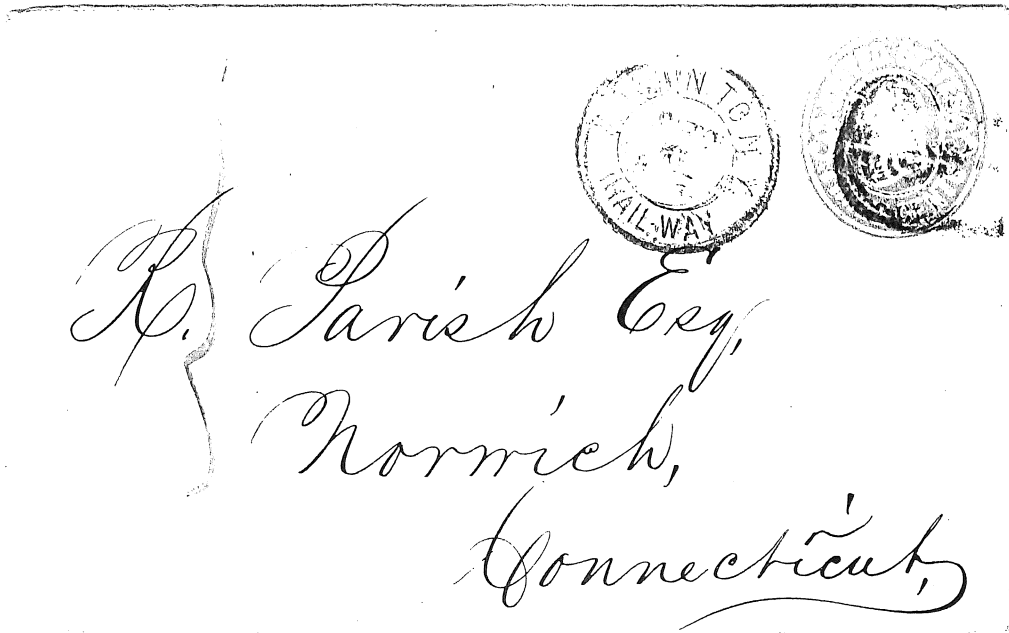 TO N. Y.
RAIL.WAY
R. Parish Esq,
Norwich,
Connecticut,